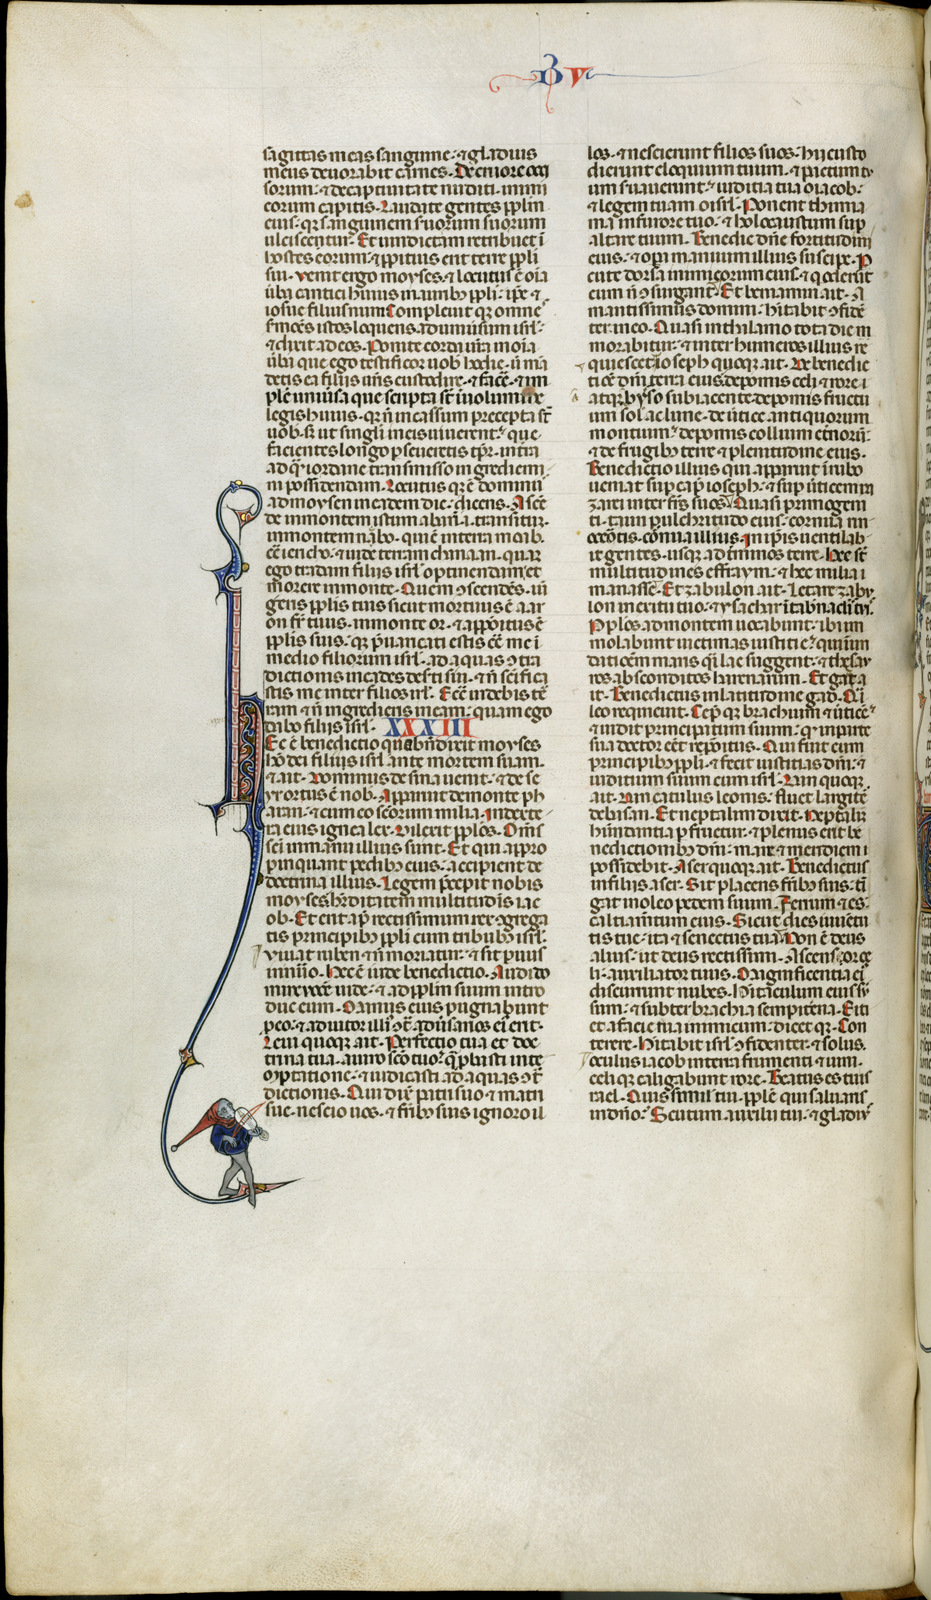 B V
sagittas meas sanguine· ⁊ gladius
meus deuorabit carnes. De cruore occi
sorum· ⁊ de captiuitate nudati inimi
corum capitis. Laudate gentes pplm
eius· qr sanguinem seruorum suorum
ulciscetur. Et uindictam retribuet i
hostes eorum· ⁊ ppitius erit terre ppli
sui. Venit ergo moyses· ⁊ locutus e oia
uba cantici huius in auribꝫ ppli· ipe ⁊
iosue filius nun. Compleuit qr omne
smones istos loquens ad uniuersum isrl·
⁊ dixit ad eos. Ponite corda ura in oia
uba que ego testificor uob hodie· ut ma
detis ea filiis uris custodire· ⁊ face· ⁊ im
ple uniuersa que scripta st i uolumine
legis huius· qr n incassum precepta st
uob· s ut singli in eis uiuerent· que
facientes longo pseueretis tpr in tra
ad qr iordane transmisso ingrediemi
ni possidendam. Locutus qr e dominus
ad moysen in eadem die· dicens. Ascen
de in montem istum abarim .i. transituum·
in montem nabo· qui e in terra moab·
contra iericho· ⁊ uide terram chanaan· quam
ego tradam filiis isrl optinendam· et
morere in monte. Quem conscendens· iun
geris pplis tuis sicut mortuus e aar
on fr tuus in monte or· ⁊ appositus e
pplis suis· qr preuaricati estis contra me i
medio filiorum isrl· ad aquas contra
dictionis in cades deserti sin· ⁊ n scifica
stis me inter filios isrl. Econtra uidebis ter
ram ⁊ n ingredieris in eam· quam ego
dabo filiis isrl. XXXIII
Hec e benedictio qua bndixit moyses
ho dei filiis isrl ante mortem suam·
⁊ ait. Dominus de sina uenit· ⁊ de se
yr ortus e nob. Apparuit de monte ph
aran· ⁊ cum eo scorum milia. In dexte
ra eius ignea lex. Dilexit pplos. Oms
sci in manu illius sunt. Et qui appro
pinquant pedibꝫ eius· accipient de
doctrina illius. Legem precepit nobis
moyses· hreditatem multitudinis iac
ob. Et erit apd rectissimum rex· congrega
tis principibꝫ ppli cum tribubꝫ isrl.
Viuat ruben ⁊ n moriatur· ⁊ sit paruus
in numero. Hec e iude benedictio. Audi do
mine uocem iude· ⁊ ad pplm suum intro
duc eum. Manus eius pugnabunt
p eo· ⁊ adiutor illi contra aduersarios ei erit.
Leui quoqꝫ ait. Perfectio tua et doc
trina tua· a uiro sco tuo· que pbasti in te
mptatione· ⁊ iudicasti ad aquas contra
dictionis. Qui dixit patri suo ⁊ matri
sue· nescio uos· ⁊ fribꝫ suis ignoro il
los· ⁊ nescierunt filios suos. Hii custo
dierunt eloquium tuum· ⁊ pactum tu
um seruauerunt· iuditia tua o iacob·
⁊ legem tuam o isrl. Ponent thimia
ma in furore tuo· ⁊ holocaustum sup
altare tuum. Benedic dne fortitudini
eius· ⁊ opa manuum illius suscipe. P
cute dorsa inimicorum eius· ⁊ q oderunt
eum n consurgant. Et beniamin ait. A
mantissimus domini· hitabit confiden
ter in eo. Quasi in thalamo tota die m
morabitur· ⁊ inter humeros illius re
quiescet. Ioseph quoqꝫ ait. De benedic
tione dni terra eius· de pomis celi ⁊ rore·
atqꝫ abysso subiacente· de pomis fructu
um solis ac lune· de uertice antiquorum
montium· de pomis collium eternorum·
⁊ de frugibꝫ terre ⁊ plenitudine eius.
Benedictio illius qui apparuit i rubo
ueniat sup cap ioseph· ⁊ sup uerticem na
zarei inter frs suos. Quasi primogeni
ti tauri pulchritudo eius· cornua rin
ocerotis cornua illius. In ipsis uentilab
it gentes· usqꝫ ad terminos terre. Hec st
multitudines effraym· ⁊ hec milia
manasse. Et zabulon ait. Letare zabu
lon in exitu tuo· ⁊ ysachar i tabernaclis tuis.
Pplos ad montem uocabunt· ibi im
molabunt uictimas iustitie· qui inun
dationem maris quasi lac suggent· ⁊ thesau
ros absconditos harenarum. Et gad a
it. Benedictus in latitudine gad. Qi
leo requieuit. Cepit qꝫ brachium ⁊ uerticem
⁊ uidit principatum suum· qr in parte
sua doctor esset repositus. Qui fuit cum
principibꝫ ppli· ⁊ fecit iustitias dni· ⁊
iuditium suum cum isrl. Dan quoqꝫ
ait. Dan catulus leonis· fluet largiter
de basan. Et neptalim dixit. Neptalim
habundantia p fruetur· ⁊ plenus erit be
nedictionibꝫ dni· mare ⁊ meridiem
possidebit. Aser quoqꝫ ait. Benedictus
in filiis aser. Sit placens fribꝫ suis· tin
gat in oleo pedem suum. Ferrum ⁊ es
caltiamtum eius. Sicut dies iuuentu
tis tue· ita ⁊ senectus tua. Non e deus
alius· ut deus rectissimi. Ascensor ce
li· auxiliator tuus. Magnificentia ei
discurrunt nubes. Hitaculum eius sur
sum· ⁊ subter brachia sempiterna. Eici
et a facie tua inimicum· dicet qr. Con
terere. Hitabit isrl confidenter· ⁊ solus.
Oculus iacob in terra frumenti ⁊ uini·
celi qr caligabunt rore. Beatus es tu is
rael. Quis similis tui pple qui saluaris
in dno. Scutum auxilii tui· ⁊ gladius